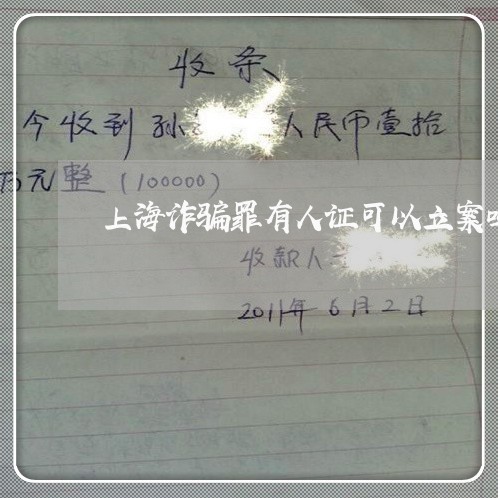 收条
今收到孙 人民币壹拾
万元整（100000）
上海诈骗罪有人证可以立案吗
收款人
2011年6月2日